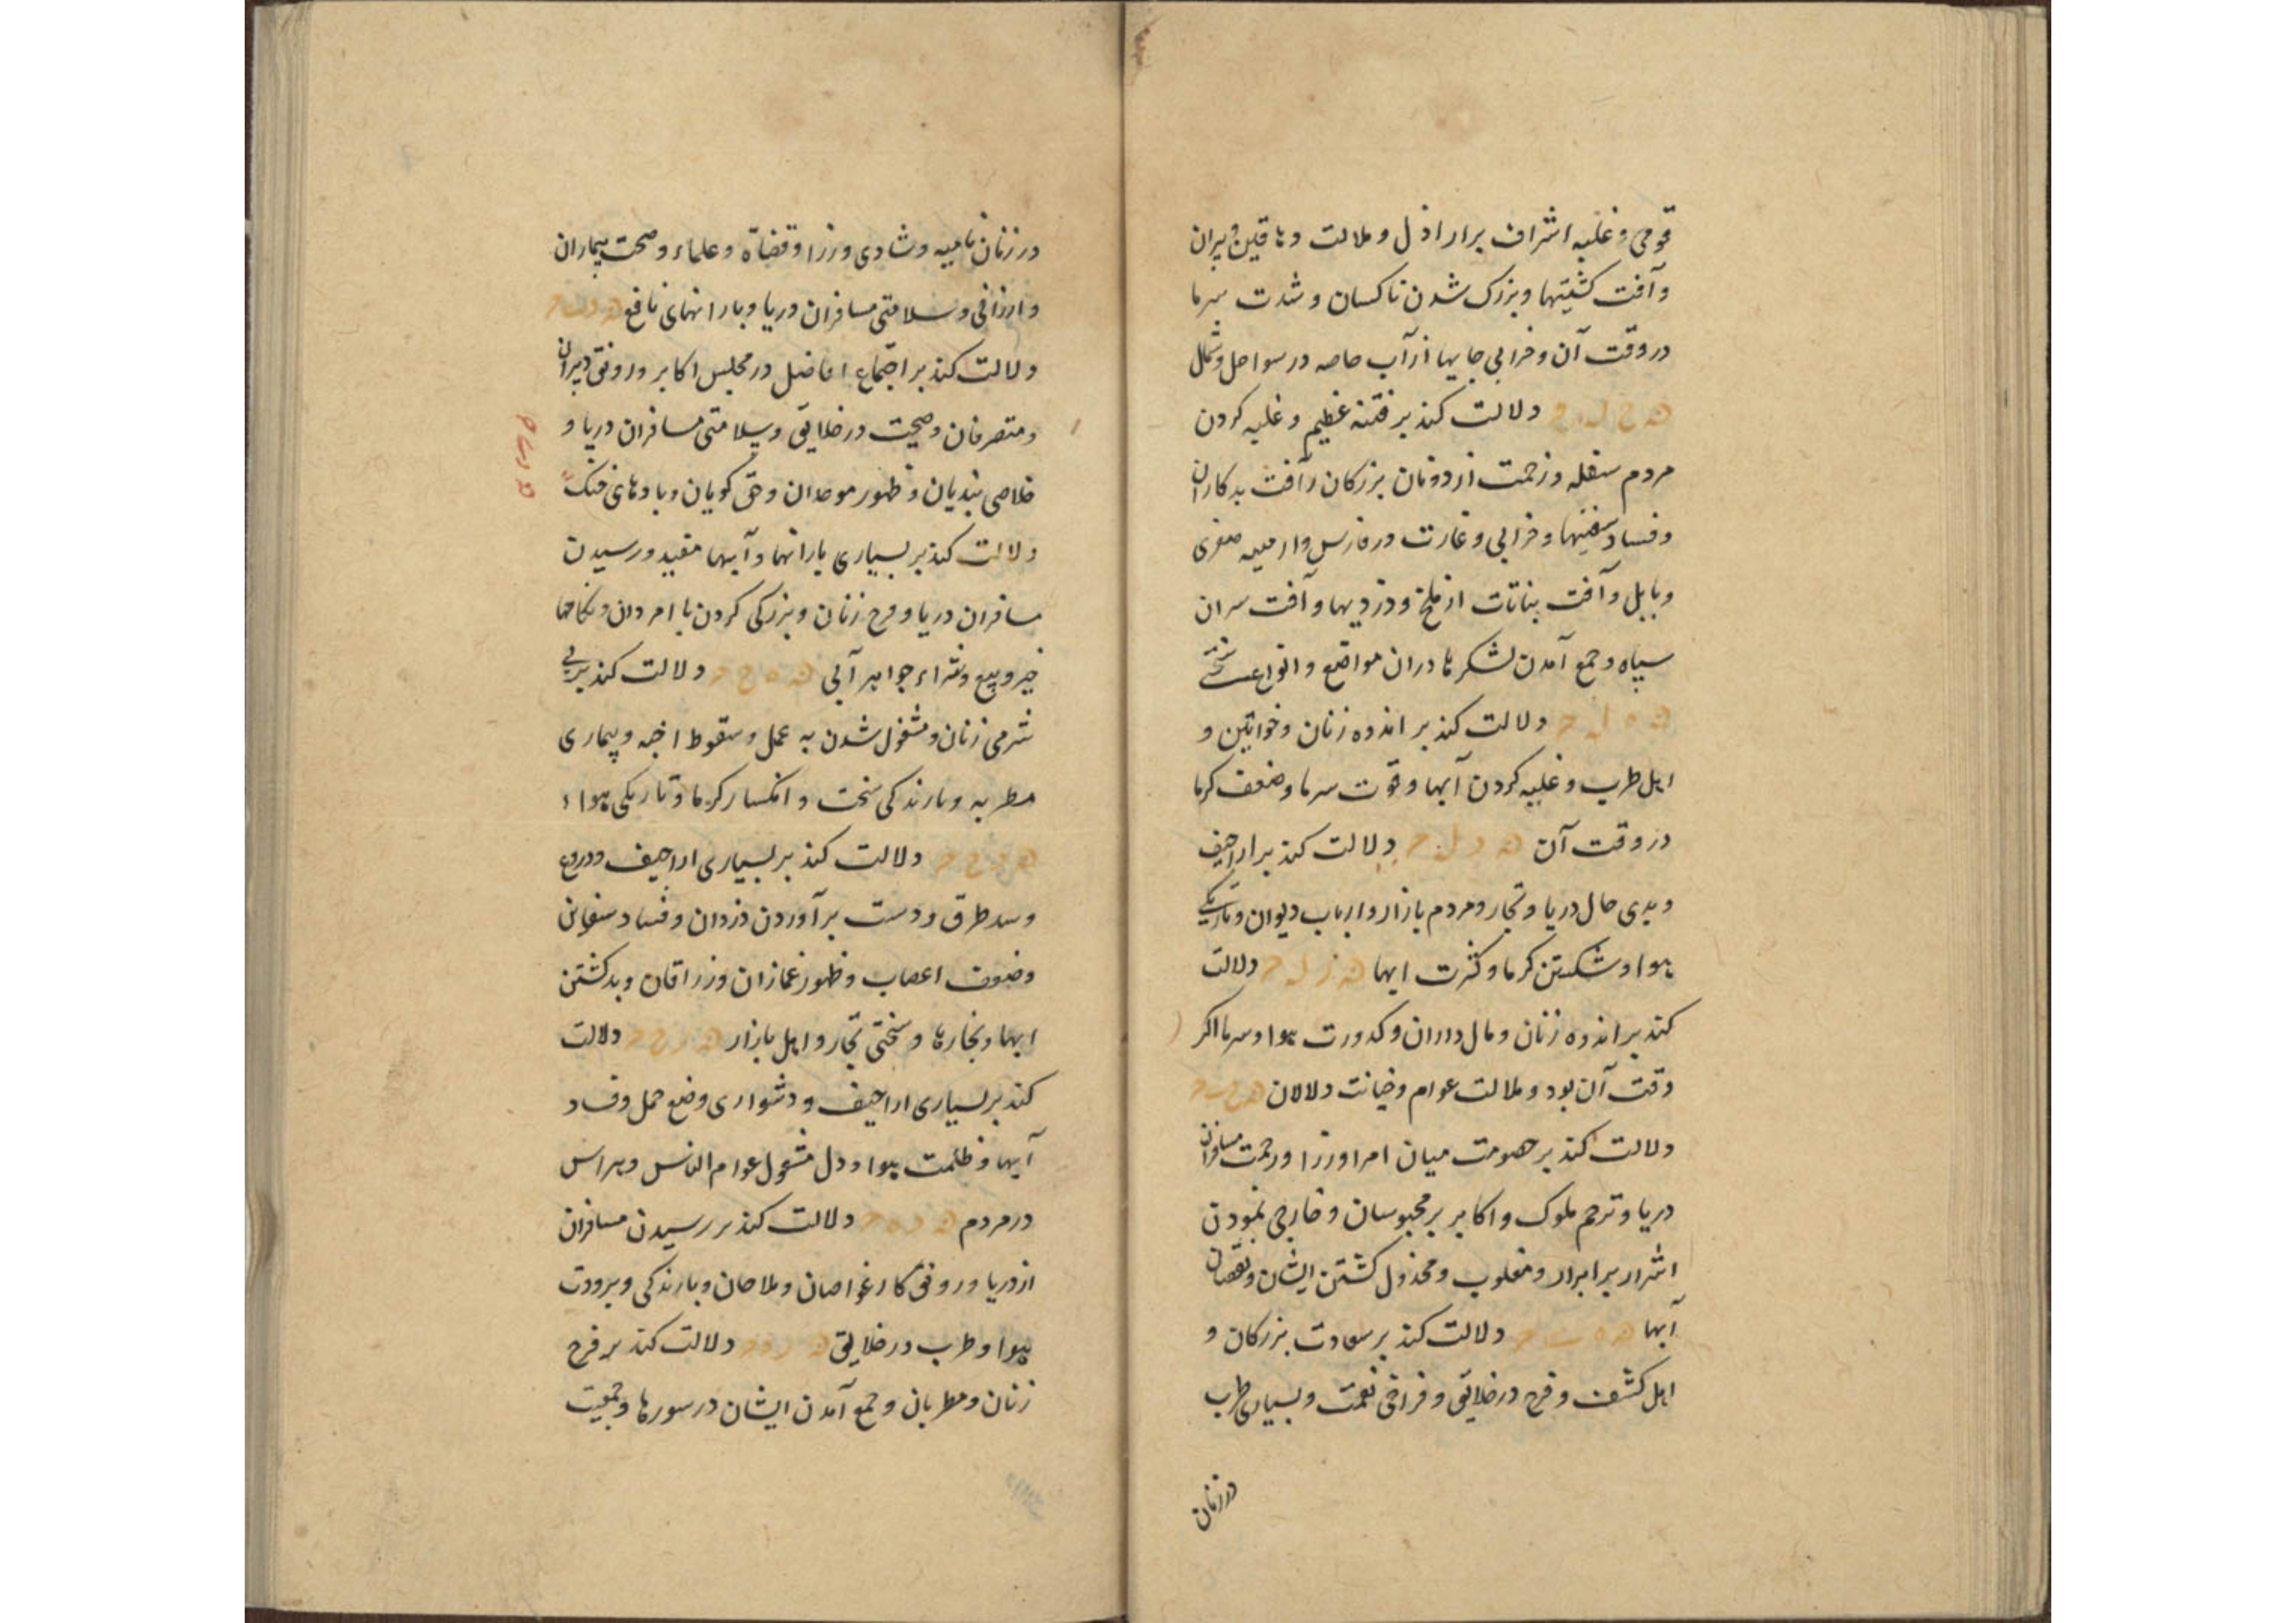 قومی و غلبه اشراف بر اراذل و ملالت دهاقین و پیران
و آفت کشتیها و بزرک شدن ناکسان و شدت سرما
در وقت آن و خرابی جایها از آب خاصه در سواحل و شمال
دلالت کند بر فتنه عظیم و غلبه کردن
مردم سفله و زحمت از دونان بزرکان و آفت بدکاران
و فساد سفینها و خرابی و غارت در فارس و ارمینیه صغری
و بابل و آفت نباتات از ملخ و دزدیها و آفت سران
سپاه و جمع آمدن لشکرها دران مواضع و انواع سختی
ه ه ل ح دلالت کند بر اندوه زنان و خواتین و
اهل طرب و غلبه کردن آبها و قوت سرما و ضعف کرما
در وقت آن ه و ل ح دلالت کند بر اراجیف
و بدی حال دریا و تجار و مردم بازار و ارباب دیوان و تاریکی
هوا و شکستن کرما و کثرت ابها ه ز ل ح دلالت
کند بر اندوه زنان و مال داران و کدورت هوا و سرما اکر
وقت آن بود و ملالت عوام و خیانت دلالان
دلالت کند بر خصومت میان امرا و وزرا و زحمت مسافران
دریا و ترحم ملوک و اکابر بر محبوسان و خارجی نمودن
اشرار بر ابرار و مغلوب و مخذول کشتن ایشان و نقصان
آبها دلالت کند بر سعادت بزرکان و
اهل کشف و فرح در خلایق و فراخی نعمت و بسیاری طرب
در زنان
در زنان نامیه و شادی وزرا و قضاة و علماء و صحت بیماران
و ارزانی و سلامتی مسافران دریا و بارانهای نافع
دلالت کند بر اجتماع افاضل در مجلس اکابر و رونق دبیران
و متصرفان و صحت در خلایق و سلامتی مسافران دریا و
خلاصی بندیان و ظهور موحدان و حق کویان و بادهای خنک
دلالت کند بر بسیاری بارانها و آبها مفید و رسیدن
مسافران دریا و فرح زنان و بزرکی کردن با امردان و نکاحها
خیر و بیع و شراء جواهر آبی ه ه ح ح دلالت کند بر بی
شرمی زنان و مشغول شدن به عمل و سقوط اجنه و بیماری
مطربه و بارندکی سخت و انکسار کرما و تاریکی هوا
ه و ح ح دلالت کند بر بسیاری اراجیف و دروغ
و سد طرق و دست برآوردن دزدان و فساد سفاین
و ضعف اعصاب و ظهور غمازان و زراقان و بد کشتن
ابها و بخارها و سختی تجار و اهل بازار ه ز ح ح دلالت
کند بر بسیاری اراجیف و دشواری وضع حمل و فساد
آبها و ظلمت هوا و دل مشغول عوام الناس و هراس
در مردم دلالت کند بر رسیدن مسافران
از دریا و رونق کار غواصان و ملاحان و بارندکی و برودت
هوا و طرب در خلایق دلالت کند بر فرح
زنان و مطربان و جمع آمدن ایشان در سورها و جمعیت